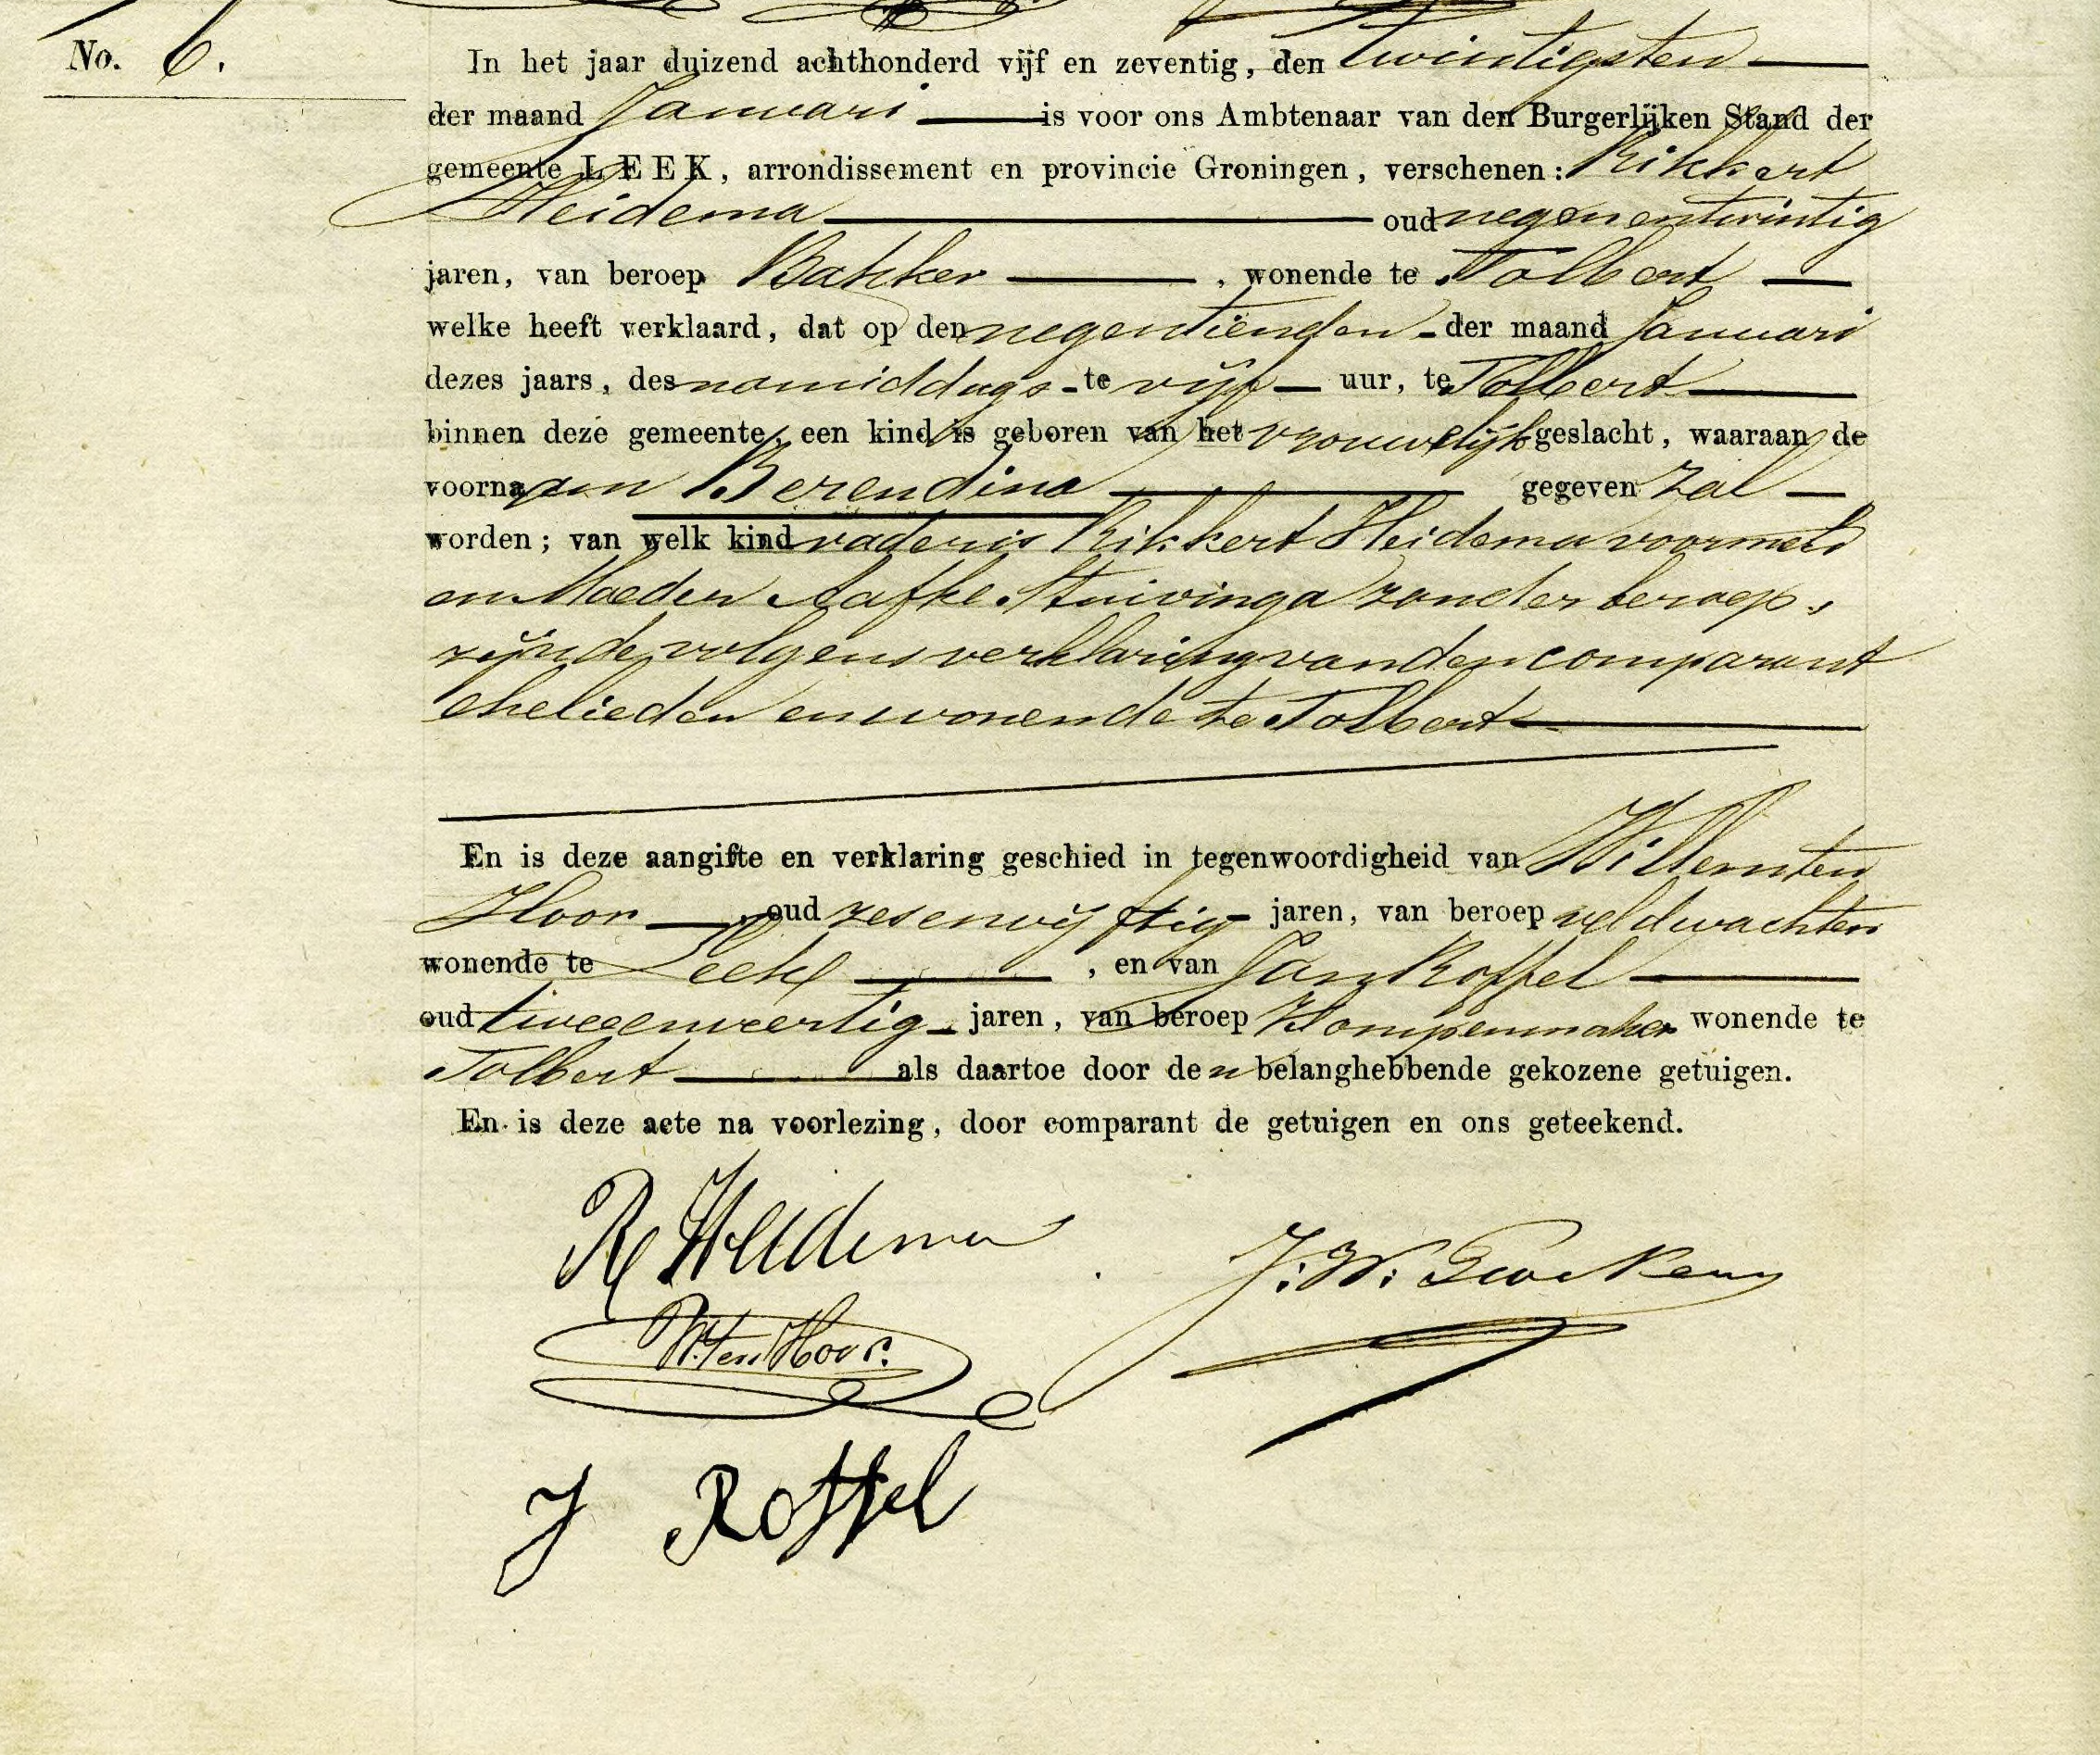 No. 6.
In het jaar duizend achthonderd vijf en zeventig, den twintigsten
der maand Januari is voor ons Ambtenaar van den Burgerlijken Stand der
gemeente LEEK, arrondissement en provincie Groningen, verschenen: Rikkert
Heidema oud negenentwintig
jaren, van beroep Bakker, wonende te Tolbert
welke heeft verklaard, dat op den negentienden der maand Januari
dezes jaars, des namiddags te vijf uur, te Tolbert
binnen deze gemeente, een kind is geboren van het vrouwelijk geslacht, waaraan de
voornaam Berendina gegeven zal
worden; van welk kind vader is Rikkert Heidema voormeld
en Moeder Aafke Stuivinga zonder beroep,
zijnde volgens verklaring van den comparant
ehelieden en wonende te Tolbert
En is deze aangifte en verklaring geschied in tegenwoordigheid van Willem ten
Hoor, oud zesenvijftig jaren, van beroep veldwachter
wonende te Leek, en van Jan Roffel
oud tweeenveertig jaren, van beroep Klompenmaker wonende te
Tolbert als daartoe door den belanghebbende gekozene getuigen.
En is deze acte na voorlezing, door comparant de getuigen en ons geteekend.
R Heidema
J. W.
W. ten Hoor.
J Roffel